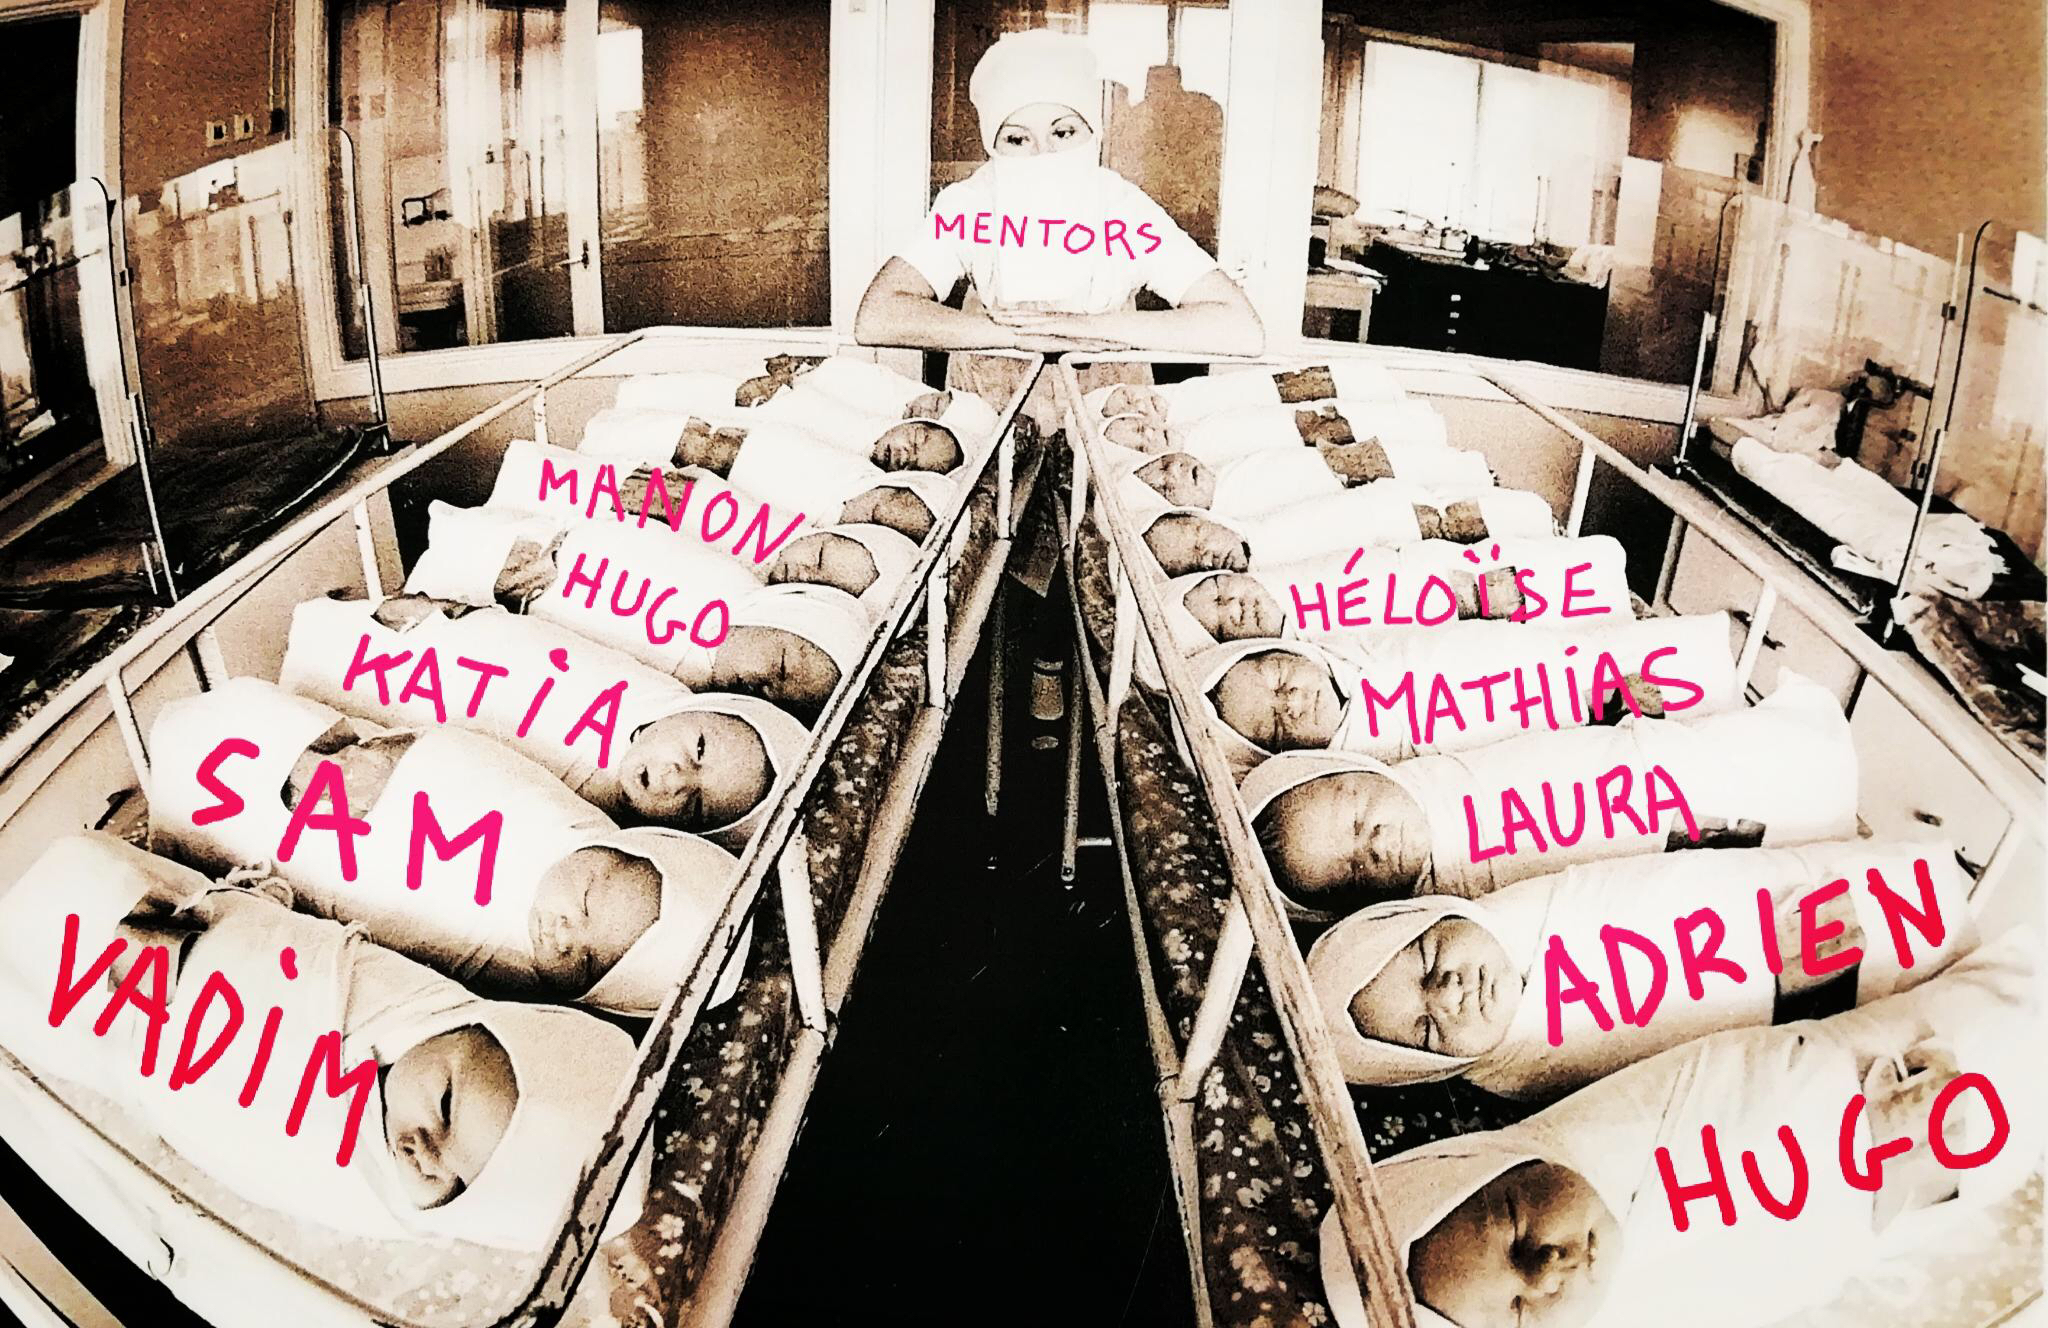 MENTORS
MANON
HUGO
KATiA
SAM
VADiM
HÉLOÏSE
MATHiAS
LAURA
ADRIEN
HUGO